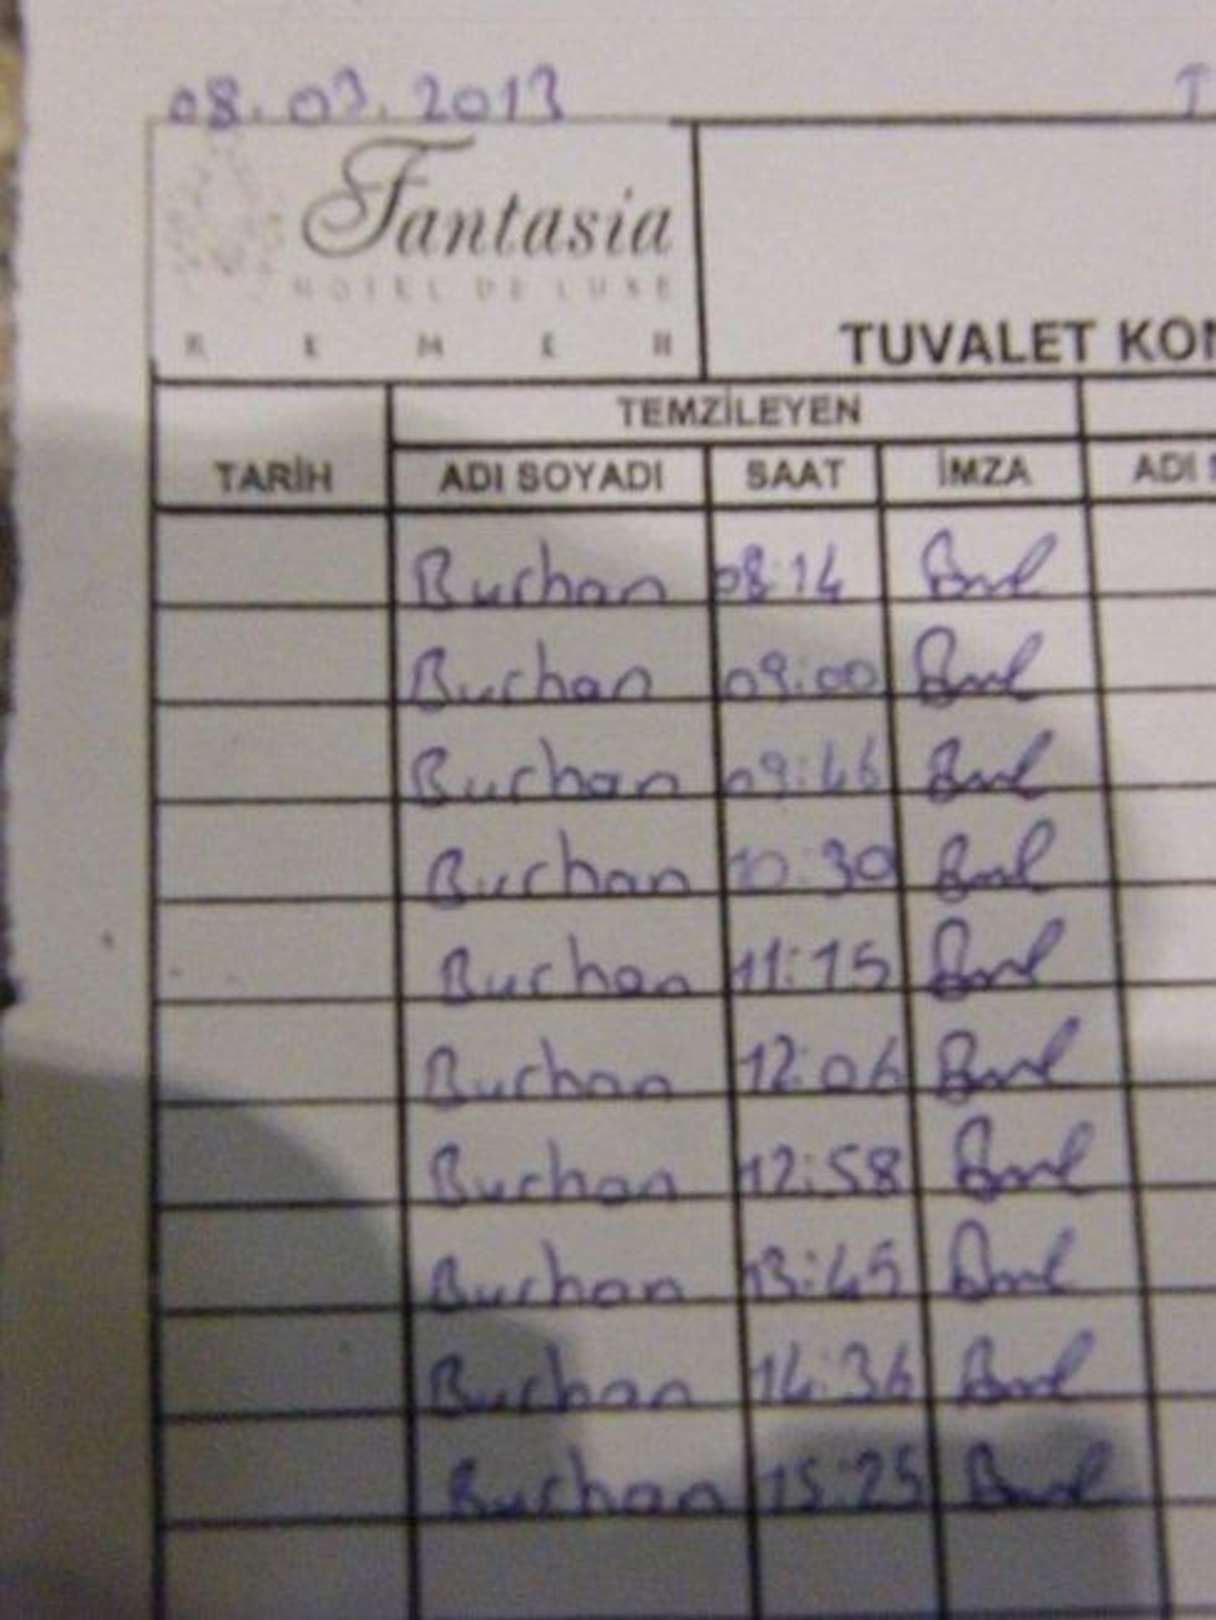 08.03.2013
Fantasia
HOTEL DE LUXE
KEMER
TUVALET KON
TEMZİLEYEN
TARİH ADI SOYADI SAAT İMZA ADI
Burhan 08:14
Burhan 09:00
Burhan 09:46
Burhan 10:30
Burhan 11:15
Burhan 12:06
Burhan 12:58
Burhan 13:45
Burhan 14:36
Burhan 15:25